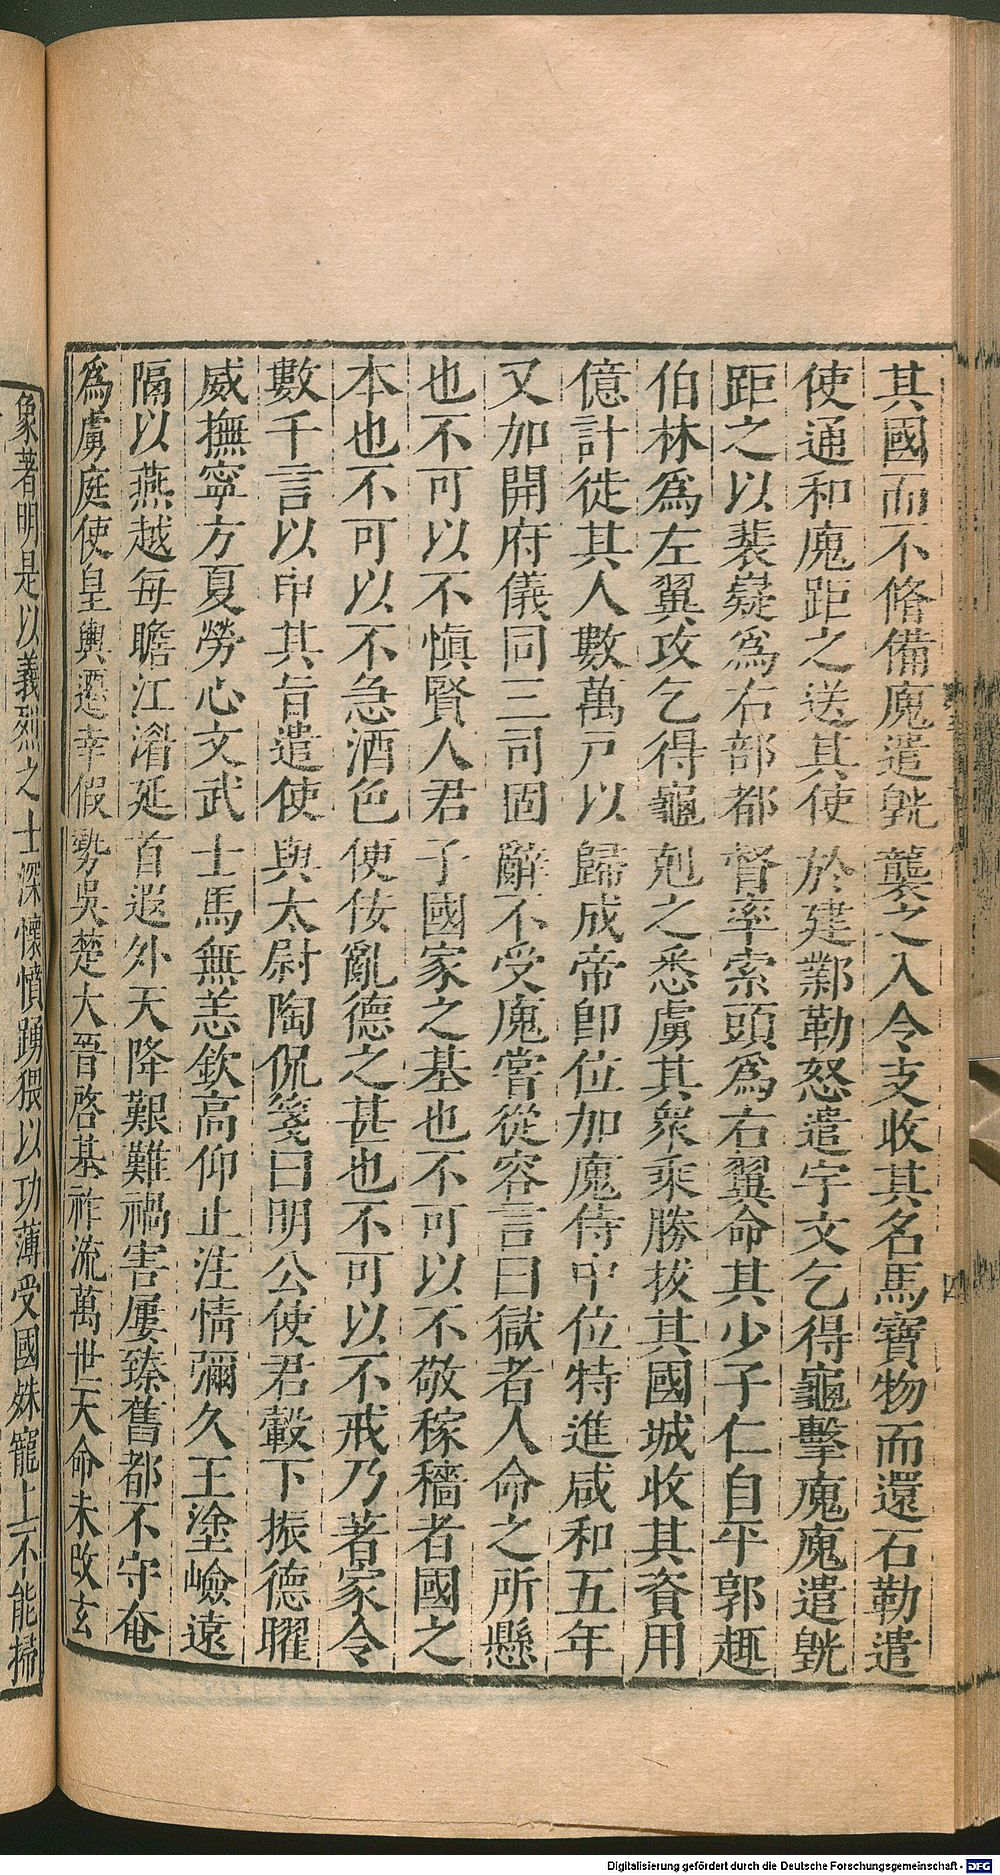 其國而不脩備廆遣皝襲之入令支收其名馬寶物而還石勒遣
使通和廆距之送其使於建鄴勒怒遣宇文乞得龜擊廆廆遣皝
距之以裴嶷爲右部都督率索頭爲右翼命其少子仁自平郭趣
伯林爲左翼攻乞得龜剋之悉虜其衆乘勝拔其國城收其資用
億計徙其人數萬戸以歸成帝即位加廆侍中位特進咸和五年
又加開府儀同三司固辭不受廆嘗從容言曰獄者人命之所懸
也不可以不慎賢人君子國家之基也不可以不敬稼穡者國之
本也不可以不急酒色便佞亂德之甚也不可以不戒乃著家令
數千言以申其旨遣使與太尉陶侃箋曰明公使君轂下振德曜
威撫寧方夏勞心文武士馬無恙欽高仰止注情彌久王塗嶮遠
隔以燕越每瞻江湄延首遐外天降艱難禍害屢臻舊都不守奄
爲虜庭使皇輿遷幸假勢吳楚大晉啓基祚流萬世天命未改玄
象著明是以義烈之士深懷憤踴猥以功薄受國殊寵上不能掃
四
Digitalisierung gefördert durch die Deutsche Forschungsgemeinschaft - DFG